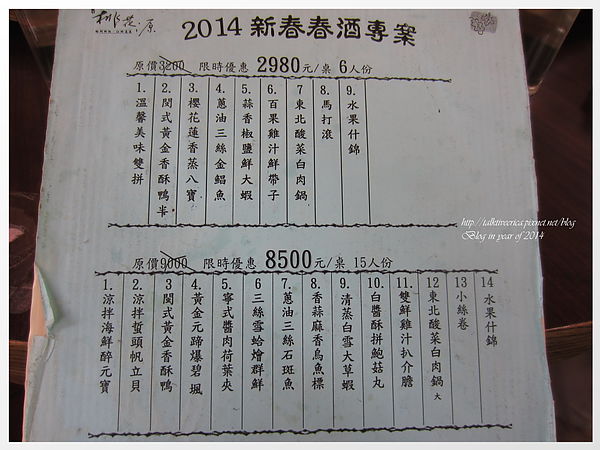 桃花源
2014新春春酒專案
原價3200 限時優惠 2980元/桌 6人份
1. 溫馨美味雙拼
2. 閩式黃金香酥鴨半
3. 櫻花蓮香蒸八寶
4. 蔥油三絲金鯧魚
5. 蒜香椒鹽鮮大蝦
6. 百果雞汁鮮帶子
7 東北酸菜白肉鍋
8. 馬打滾
9. 水果什錦
http://talktiveerica.pixnet.net/blog
Blog in year of 2014
原價9000 限時優惠 8500元/桌 15人份
1. 涼拌海鮮醉元寶
2. 涼拌蜇頭帆立貝
3 閩式黃金香酥鴨
4. 黃金元蹄爆碧堀
5. 寧式醬肉荷葉夾
6 三絲雪蛤燴群鮮
7. 蔥油三絲石斑魚
8. 香蒜麻香烏魚標
9. 清蒸白雪大草蝦
10. 白醬酥拼鮑菇丸
11. 雙鮮雞汁扒介膽
12 東北酸菜白肉鍋大
13 小絲卷
14 水果什錦